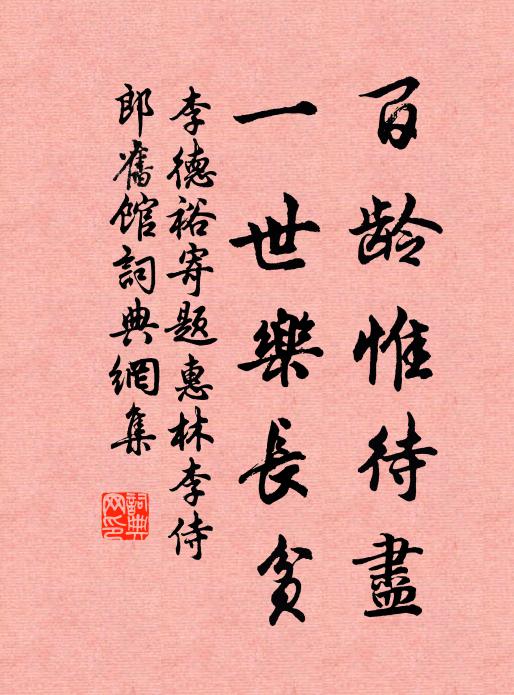 百龄惟待盡
一世樂長貧
李德裕寄題惠林李侍
郎舊館詞典網集
詞典
网印